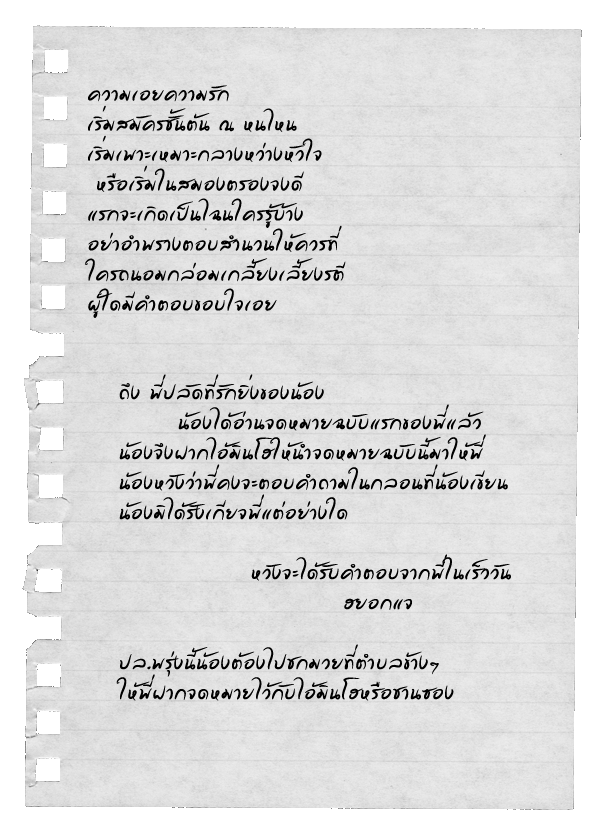 ความเอยความรัก
เริ่มสมัครชั้นตัน ณ หนไหน
เริ่มเพาะเหมาะกลางหว่างหัวใจ
หรือเริ่มในสมองตรองจงดี
แรกจะเกิดเป็นไฉนใครรู้บ้าง
อย่าอำพรางตอบสำนวนให้ควรที่
ใครถนอมกล่อมเกลี้ยงเลี้ยงรตี
ผู้ใดมีคำตอบขอบใจเอย
ถึง พี่ปลัดที่รักยิ่งของน้อง
น้องได้อ่านจดหมายฉบับแรกของพี่แล้ว
น้องจึงฝากไอ้มินโฮให้นำจดหมายฉบับนี้มาให้พี่
น้องหวังว่าพี่คงจะตอบคำถามในกลอนที่น้องเขียน
น้องมิได้รังเกียจพี่แต่อย่างใด
หวังจะได้รับคำตอบจากพี่ในเร็ววัน
ฮยอกแจ
ปล.พรุ่งนี้น้องต้องไปชกมวยที่ตำบลข้างๆ
ให้พี่ฝากจดหมายไว้กับไอ้มินโฮหรือชานซอง